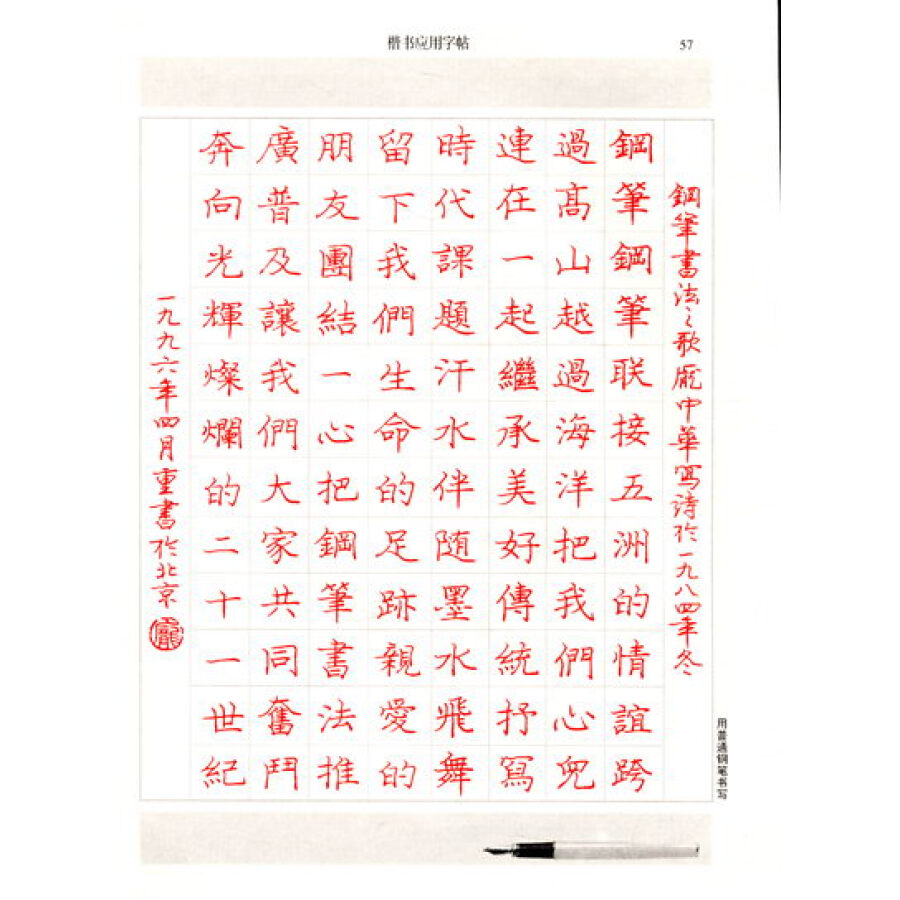 楷书应用字帖
57
鋼筆書法之歌龐中華寫诗於一九八四年冬
鋼筆鋼筆联接五洲的情誼跨
過髙山越過海洋把我們心兒
連在一起繼承美好傳統抒寫
時代課題汗水伴随墨水飛舞
留下我們生命的足跡親愛的
朋友團結一心把鋼筆書法推
廣普及讓我們大家共同奮鬥
奔向光輝燦爛的二十一世紀
一九九六年四月重書於北京
龐
用普通钢笔书写